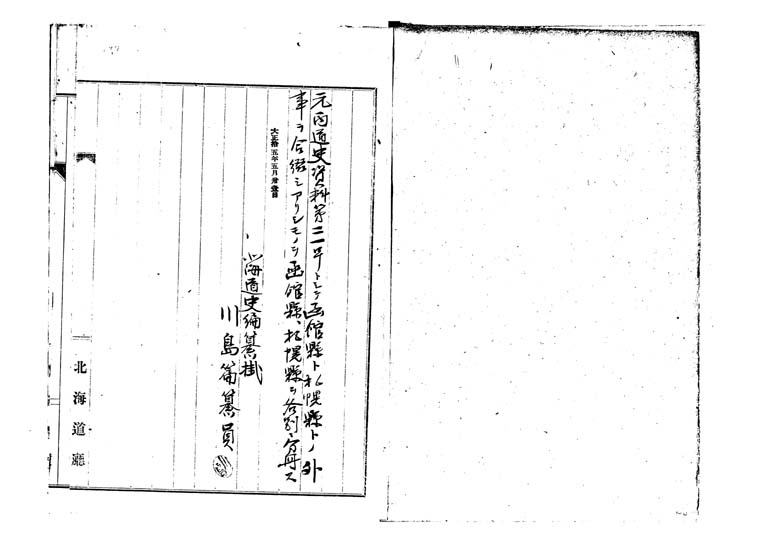 元函道史資料第三一号トシテ函館縣ト札幌縣トノ外
事ヲ合綴シアリシモノヲ函館縣、札幌縣ヲ各別ニ分冊ス
大正拾五年五月卅壹日
北海道史編纂掛
川島編纂員
北海道廳